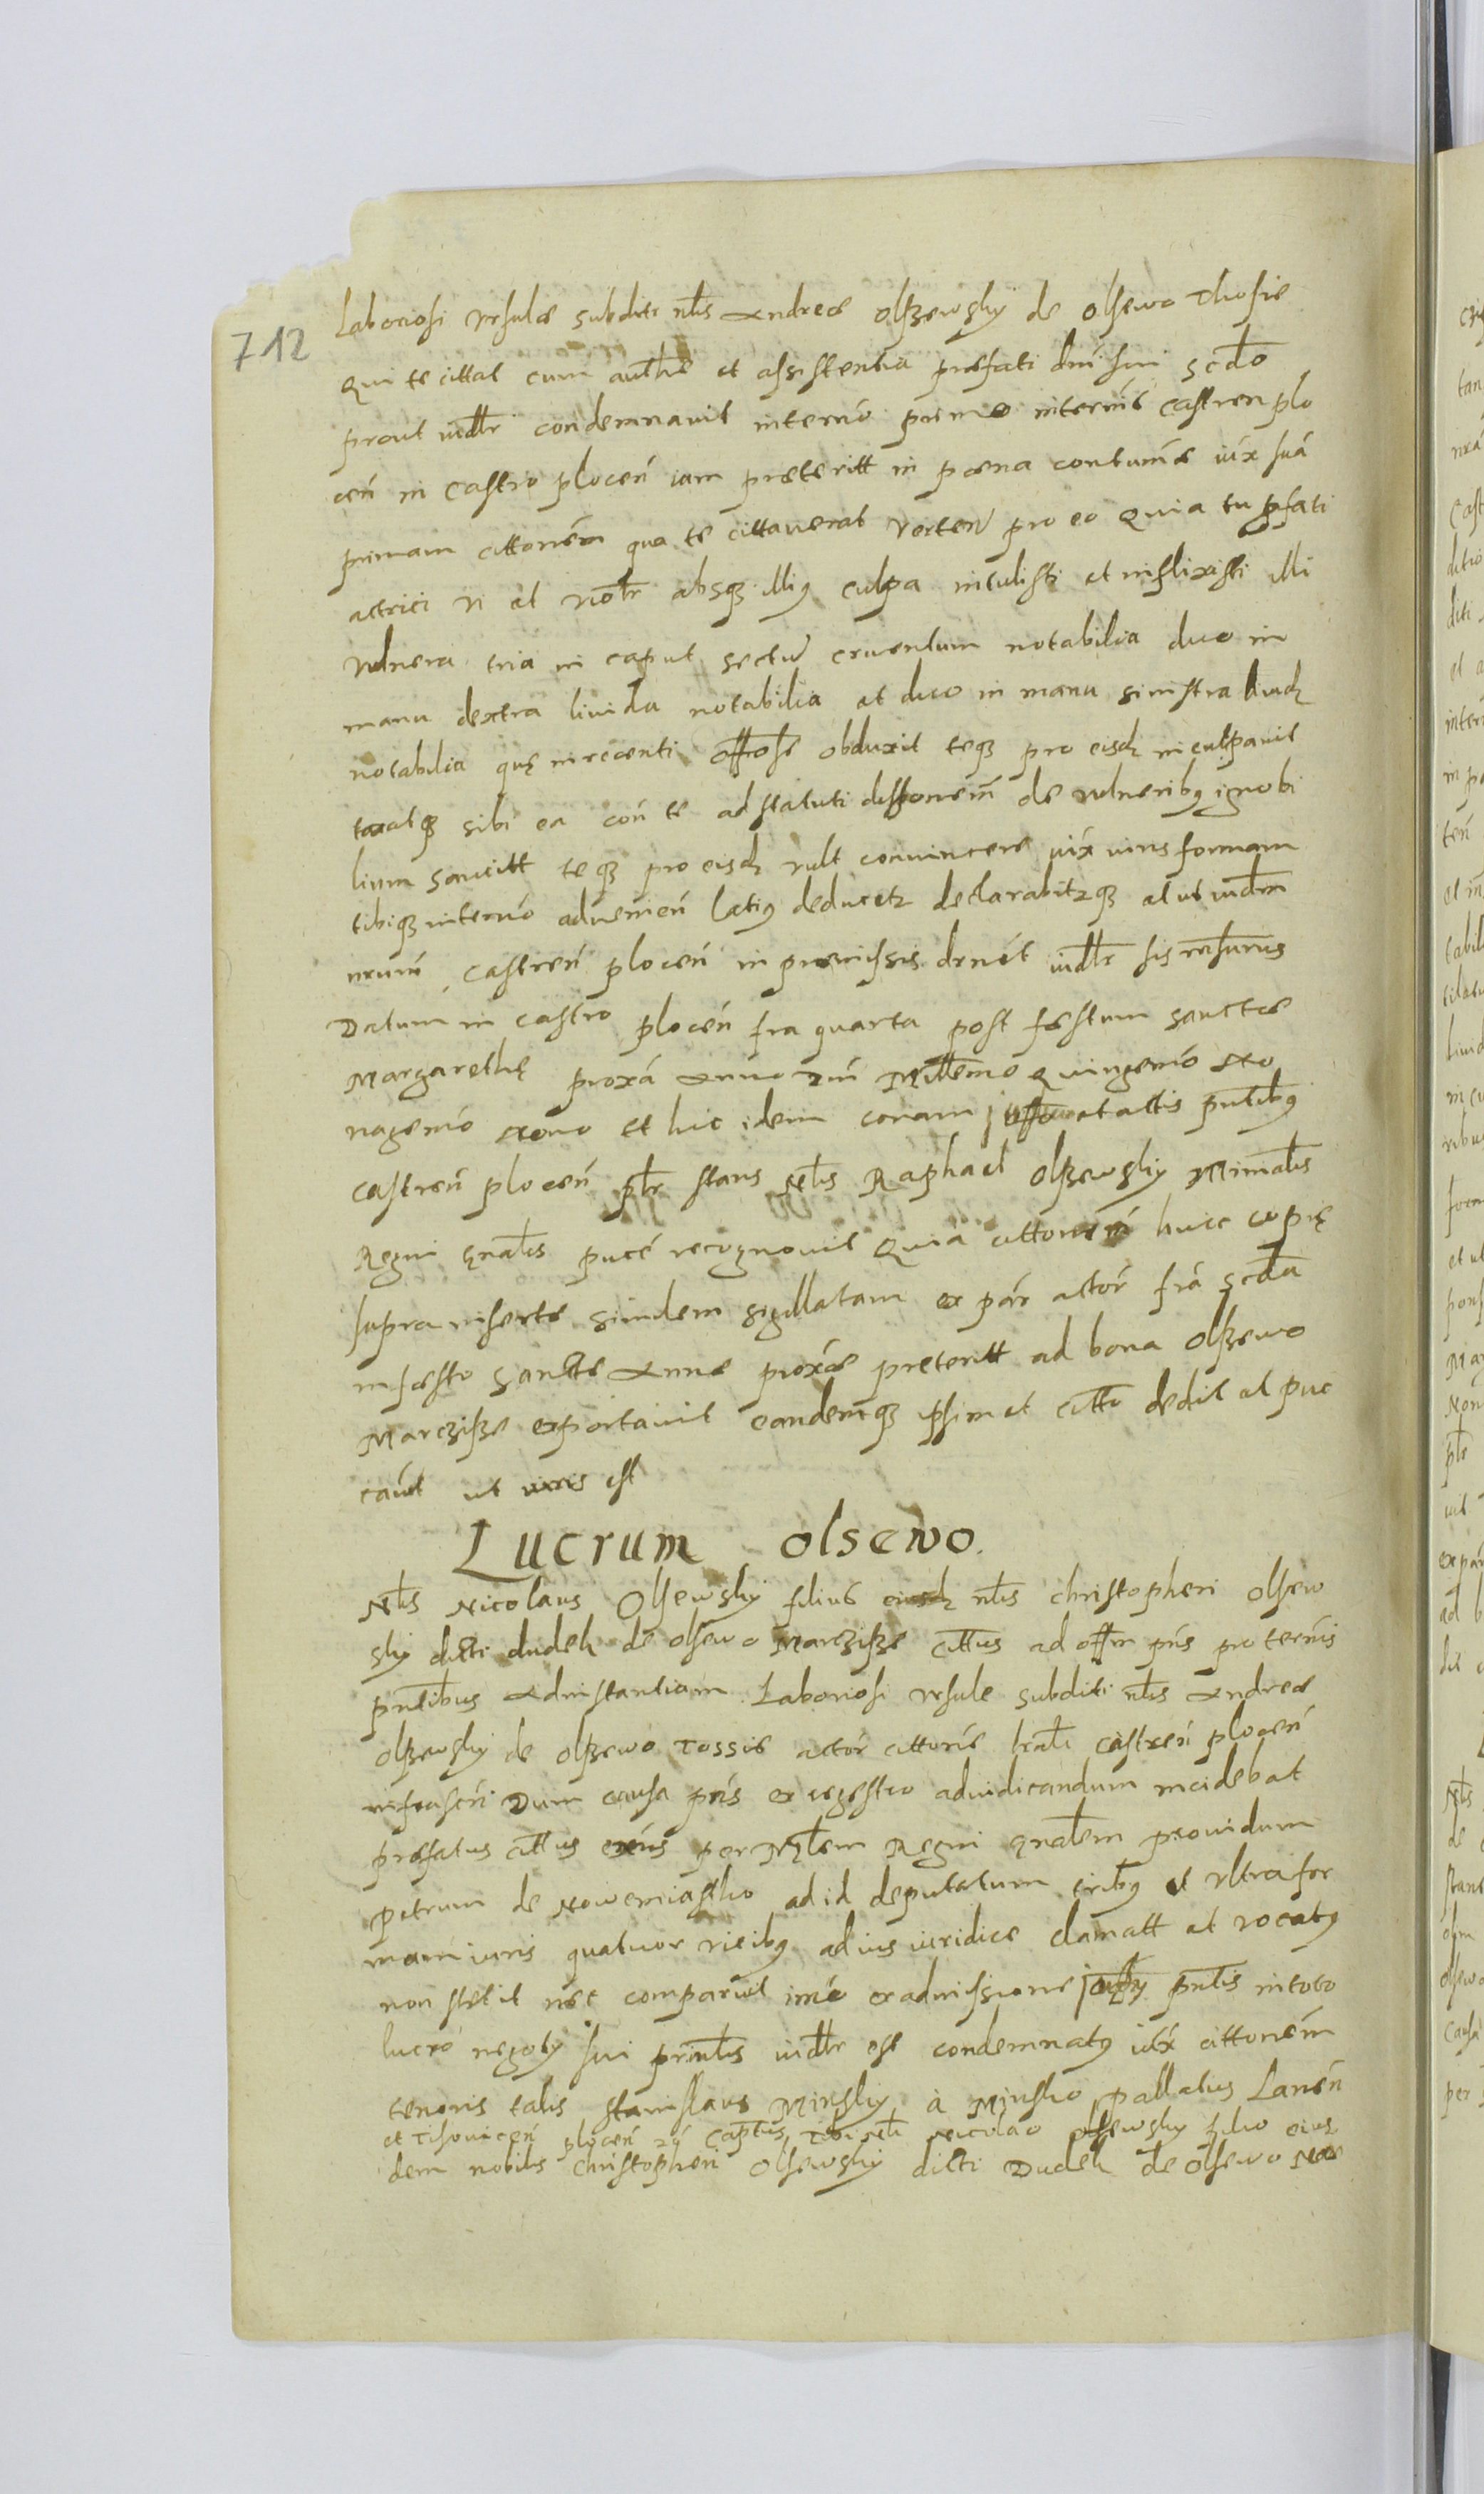 712
Laboriosi Ursulæ subditi nlis Andreæ Olszewsky de Olsewo Thosie
Qui te cittat cum authe et assistentia præfati dni sui scdo
prout iudltr condemnavit in termo primo in termis castren plo
cen in Castro plocen iam præteritt in poena contumæ iux suá
primam cittonem qua te cittaverat verten pro eo Quia tu pfati
actrici vi et violtr absq illig culpa intulisti et inflixisti illi
vulnera tria in caput sectu cruentum notabilia duo in
manu dextra livida notabilia et duo in manu sinistra livid
notabilia quę in recenti offiose obduxit teq pro eisd inculpavit
taxatq sibi ea con te ad statuti disponem de vulneribg ignobi
lium sancitt teq pro eisd vult convincere iux iuris formam
tibiq in termo advenien latig deducetr declarabitrq et ut iudm
nrum castren plocen in præmissis drnet iudltr sis visurus
Datum in castro plocen fra quarta post festum sanctæ
Margarethę proxá Anno Dni Millemo Quingemo No
nagemo Nono Et hic idem coram offio et actis pntibg
castren plocen pltr stans nlis Raphael Olszewsky Minialis
Regni gnalis puce recognovit Quia cittonem huic copię
supra inserte simlem sigillatam ex par actor fra scda
in festo Sanctæ Annæ proxæ preteritt ad bona Olszewo
Marczisze exportavit eandemq ipsimet citto dedit et puc
cavit ut iuris est
Lucrum Olsewo.
Nlis Nicolaus Olsewsky filius eiusd nlis Christopheri Olsew
sky dicti dudek de Olsewo Marczisze cittus ad offm pns pro termis
pntibus Ad instantiam Laboriosi Ursule subditi nlis Andreæ
Olszewsky de Olszewo Tossie actor cittonis lralr castren plocen
infrascri Dum causa pns ex regestro adiudicandum incidebat
præfatus cittus exns per Mlem Regni gnalem providum
Petrum de Nowemiastho ad id deputatum tribg et ultra for
mam iuris quatuor vicibg ad ius iuridice clamatt et vocatg
non stetit nec comparuit imo ex admissione pntis in toto
lucro negoty sui printlis iudltr est condemnatg iux cittonem
tenoris talis Stanislaus Minsky à Minsko pallatius Lancen
et Tisovicen plocen zc Captus Tibi nli Nicolao Olsewsky filio eius
dem nobilis Christopheri Olsewsky dicti Dudek de Olsewo Mar